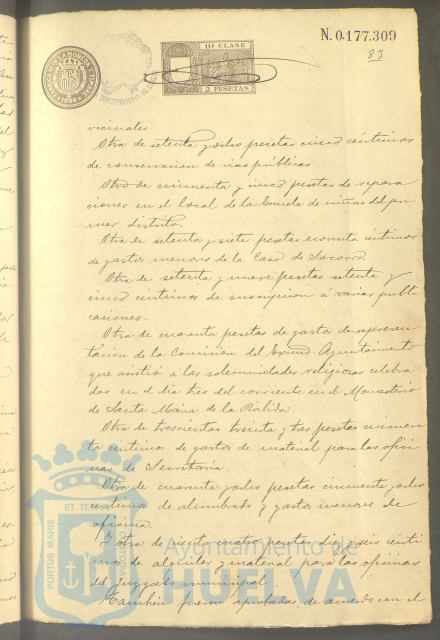 N. 0.177.309
83
11ª CLASE
2 PESETAS
1898
vecinales
Otra de setenta y ocho pesetas cinco céntimos
de conservacion de vias públicas
Otra de cincuenta y cinco pesetas de repara
ciones en el local de la Escuela de niñas del pri
mer distrito.
Otra de setenta y siete pesetas noventa céntimos
de gastos menores de la Casa de Socorro.
Otra de setenta y nueve pesetas setenta y
cinco centimos de suscripcion á varias publi
caciones.
Otra de cuarenta pesetas de gastos de represen
tacion de la Comisión del Excmo. Ayuntamiento
que asistió á las solemnidades religiosas celebra
das en el dia tres del corriente en el Monasterio
de Santa Maria de la Rábida.
Otra de trescientas treinta y tres pesetas cincuen
ta centimos de gastos de material para las ofici
nas de Secretaria.
Otra de cuarenta y ocho pesetas cincuenta y ocho
centimos de alumbrado y gastos menores de
oficina.
Y otra de ciento cuatro pesetas diez y seis centi
mos de alquiler y material para las oficinas
del juzgado municipal.
Tambien fueron aprobadas de acuerdo con el
PORTUS MARIS
ET TERRAE
CUSTODIA
Ayuntamiento de
HUELVA